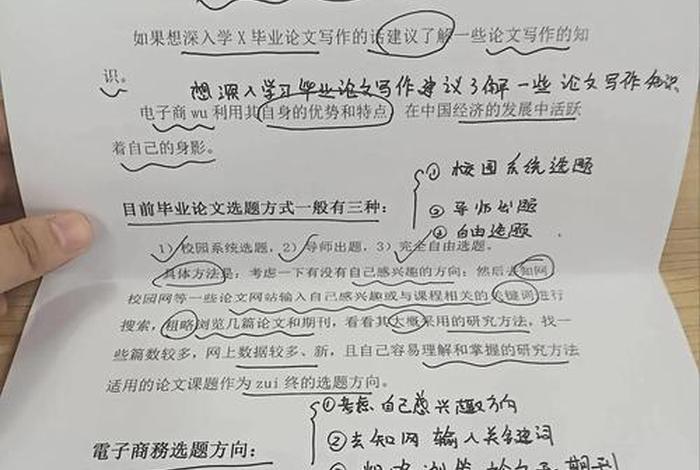 如果想深入学X毕业论文写作的话建议了解一些论文写作的知
识。
想深入学习毕业论文写作建议了解一些论文写作知识
电子商wu利用其自身的优势和特点 在中国经济的发展中活跃
着自己的身影。
①校园系统选题
目前毕业论文选题方式一般有三种:
②导师出题
③自由选题
1)校园系统选题,2)导师出题,3)完全自由选题。
具体方法是:考虑一下有没有自己感兴趣的方向;然后去知网
校园网等一些论文网站输入自己感兴趣或与课程相关的关键词进行
搜索,粗略浏览几篇论文和期刊,看看其大概采用的研究方法,找一
些篇数较多,网上数据较多、新,且自己容易理解和掌握的研究方法
适用的论文课题作为zui终的选题方向。
①考虑自己感兴趣方向
電子商務选题方向:
②去知网输入关键词